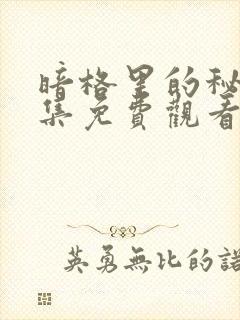 暗格里的秘
集免費觀看
英勇無比的諾